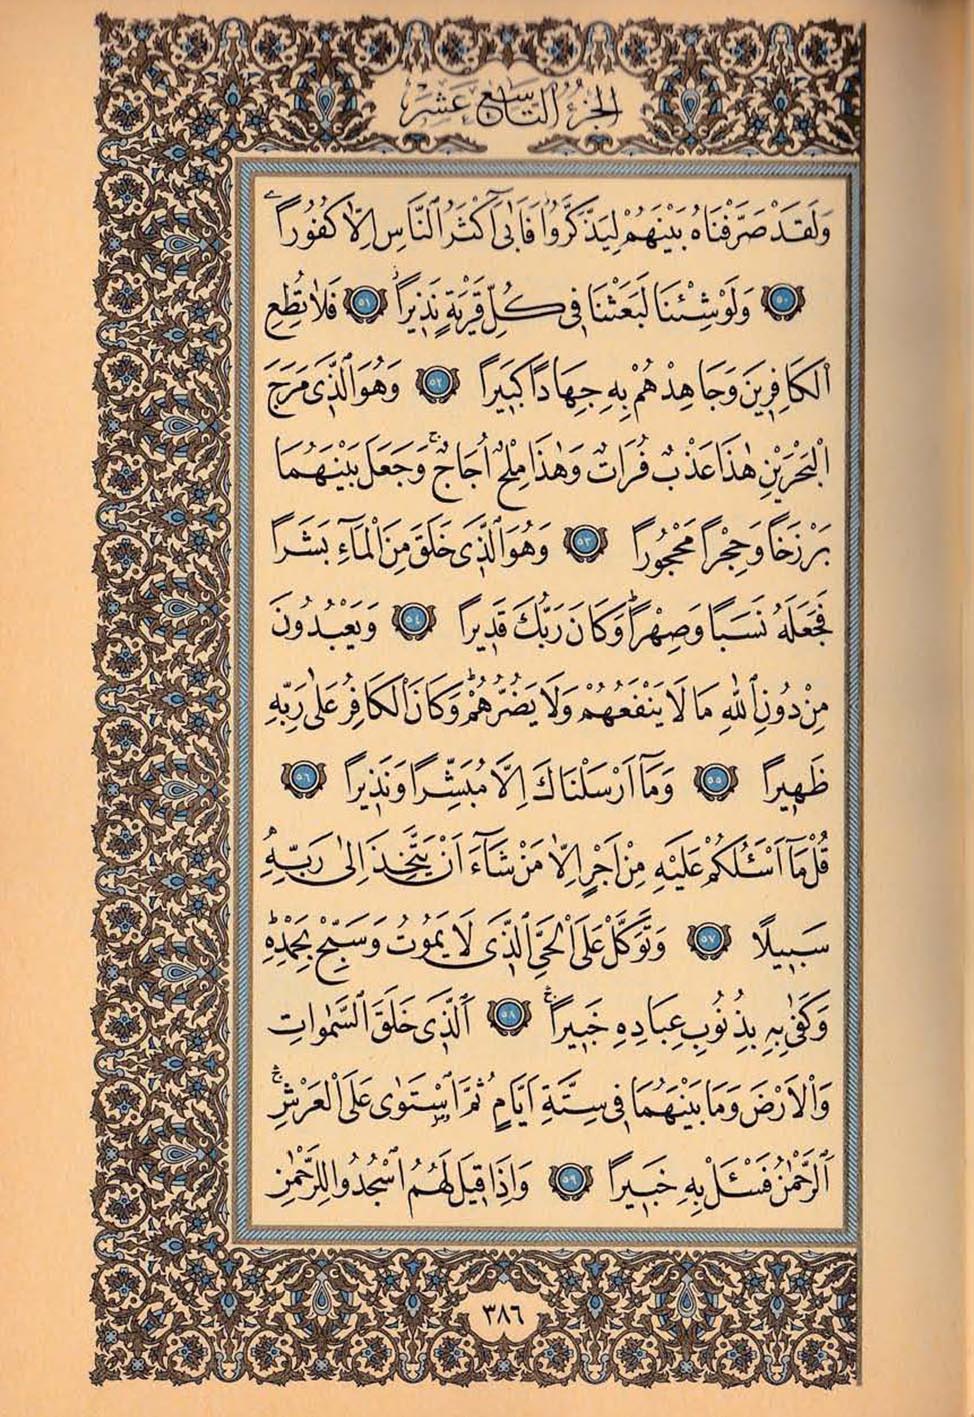 الجزء التاسع عشر
وَلَقَدْ صَرَّفْنَاهُ بَيْنَهُمْ لِيَذَّكَّرُوا فَاَبٰٓى اَكْثَرُ النَّاسِ اِلَّا كُفُورًا
﴿٥٠﴾ وَلَوْ شِئْنَا لَبَعَثْنَا فٖى كُلِّ قَرْيَةٍ نَذٖيرًا ﴿٥١﴾ فَلَا تُطِعِ
الْكَافِرٖينَ وَجَاهِدْهُمْ بِهٖ جِهَادًا كَبٖيرًا ﴿٥٢﴾ وَهُوَ الَّذٖى مَرَجَ
الْبَحْرَيْنِ هٰذَا عَذْبٌ فُرَاتٌ وَهٰذَا مِلْحٌ اُجَاجٌ وَجَعَلَ بَيْنَهُمَا
بَرْزَخًا وَحِجْرًا مَحْجُورًا ﴿٥٣﴾ وَهُوَ الَّذٖى خَلَقَ مِنَ الْمَٓاءِ بَشَرًا
فَجَعَلَهُ نَسَبًا وَصِهْرًا وَكَانَ رَبُّكَ قَدٖيرًا ﴿٥٤﴾ وَيَعْبُدُونَ
مِنْ دُونِ اللّٰهِ مَا لَا يَنْفَعُهُمْ وَلَا يَضُرُّهُمْ وَكَانَ الْكَافِرُ عَلٰى رَبِّهٖ
ظَهٖيرًا ﴿٥٥﴾ وَمَٓا اَرْسَلْنَاكَ اِلَّا مُبَشِّرًا وَنَذٖيرًا ﴿٥٦﴾
قُلْ مَٓا اَسْـَٔلُكُمْ عَلَيْهِ مِنْ اَجْرٍ اِلَّا مَنْ شَٓاءَ اَنْ يَتَّخِذَ اِلٰى رَبِّهٖ
سَبٖيلًا ﴿٥٧﴾ وَتَوَكَّلْ عَلَى الْحَىِّ الَّذٖى لَا يَمُوتُ وَسَبِّحْ بِحَمْدِهٖ
وَكَفٰى بِهٖ بِذُنُوبِ عِبَادِهٖ خَبٖيرًا ﴿٥٨﴾ اَلَّذٖى خَلَقَ السَّمٰوَاتِ
وَالْاَرْضَ وَمَا بَيْنَهُمَا فٖى سِتَّةِ اَيَّامٍ ثُمَّ اسْتَوٰى عَلَى الْعَرْشِ
اَلرَّحْمٰنُ فَسْـَٔلْ بِهٖ خَبٖيرًا ﴿٥٩﴾ وَاِذَا قٖيلَ لَهُمُ اسْجُدُوا لِلرَّحْمٰنِ
٣٨٦